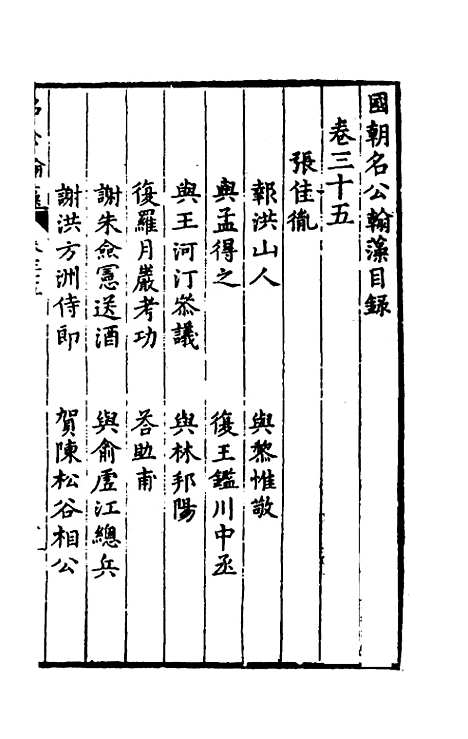 國朝名公翰藻目錄
卷三十五
張佳胤
報洪山人
與黎惟敬
與孟得之
復王鑑川中丞
與王河汀叅議
與林邦陽
復羅月巖考功
荅助甫
謝朱僉憲送酒
與俞虛江總兵
謝洪方洲侍郎
賀陳松谷相公